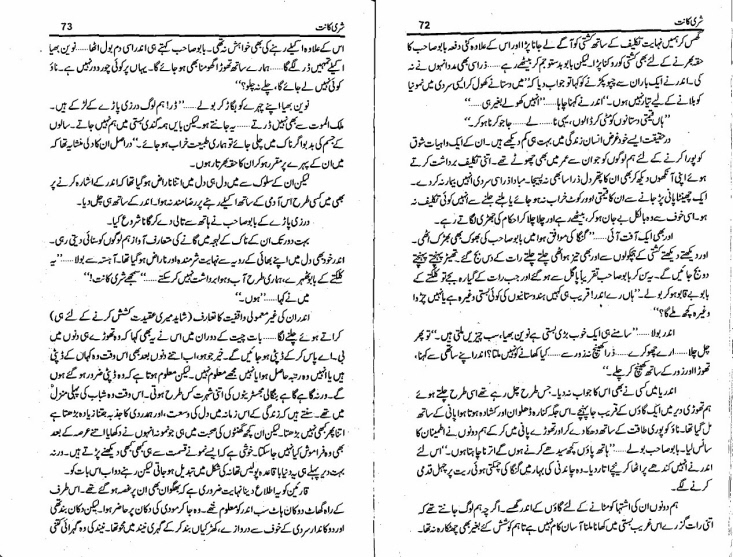 شری کانت
72
گھس کر ہمیں نہایت تکلیف کے ساتھ کشتی کو آگے لے جانا پڑا اور اس کے علاوہ کئی دفعہ بابو صاحب کا
حقہ بھرنے کے لئے بھی کشتی کو روکنا پڑا لیکن بابو بدستور جم کر بیٹھے رہے ذرا سی بھی مدد انہوں نے نہ
کی۔ اندر نے ایک بار ان سے چپو پکڑنے کو کہا تو جواب دیا کہ ’’میں دستانے کھول کر ایسی سردی میں نمونیا
کو بلانے کے لیے تیار نہیں ہوں۔‘‘ اندر نے کہنا چاہا ......’’انہیں کھولے بغیر ہی‘‘
’’ہاں قیمتی دستانوں کو مٹی کر ڈالوں، یہی نا...... لے ...... جا جو کرنا ہو کر۔‘‘
درحقیقت ایسے خود غرض انسان زندگی میں بہت ہی کم دیکھے ہیں۔ ان کے ایک واہیات شوق
کو پورا کرنے کے لئے ہم لوگوں کو جو ان سے عمر میں بھی چھوٹے تھے۔ اتنی تکلیف برداشت کرتے
ہوئے اپنی آنکھوں دیکھ کر بھی ان کا پتھر دل ذرا سا بھی نہ پسیجا۔ مبادا ذرا سی سردی انہیں بیمار نہ کر دے۔
ایک چھینٹا پانی پڑ جانے سے ان کا قیمتی اوور کوٹ خراب نہ ہو جائے یا ہلنے جلنے سے انہیں کوئی تکلیف نہ
ہو۔ اسی خوف سے وہ بالکل بے جان ہو کر، بیٹھے رہے اور چلا چلا کر احکام کی جھڑی لگاتے رہے۔
اور بھی ایک آفت آئی ......’’گنگا کی موافق ہوا میں بابو صاحب کی بھوک بھی بھڑک اٹھی۔
اور دیکھتے دیکھتے کشتی کے ہچکولوں سے اور بھی تیز ہو اٹھی چلتے چلتے رات کے دس بج گئے۔ تھیٹر پہنچتے پہنچتے
دو بج جائیں گے۔ یہ سن کر بابو صاحب تقریباً پاگل سے ہو گئے اور جب رات کے گیارہ بجے تو کلکتے کے
بابو بے قابو ہو کر بولے۔ ’’ہاں رے اندر! قریب ہی کہیں ہندوستانیوں کی کوئی بستی وغیرہ ہے یا نہیں چڑوا
وغیرہ کچھ ملے گا؟‘‘
اندر بولا ......’’سامنے ہی ایک خوب بڑی بستی ہے نوین بھیا، سب چیزیں ملتی ہیں۔‘‘ تو پھر
چل چلا...... ارے چھوکرے...... ذرا کھینچ نہ زور سے...... کیا کھانے کو نہیں ملتا؟ اندر اپنے ساتھی سے کہنا،
تھوڑا اور زور کے ساتھ کھینچ کر چلے۔‘‘
اندر یا میں کسی نے بھی اس کا جواب نہ دیا۔ جس طرح چل رہے تھے اسی طرح چلتے ہوئے
ہم تھوڑی دیر میں ایک گاؤں کے قریب جا پہنچے۔ اس جگہ کنارہ ڈھلوان اور کشادہ ہوتا ہوا پانی کے ساتھ
مل گیا تھا۔ ناؤ کو پوری طاقت کے ساتھ دھکا دے کر اور تھوڑے پانی میں کر کے ہم دونوں نے اطمینان کا
سانس لیا۔ بابو صاحب بولے......’’ہاتھ پاؤں کچھ سیدھے کرنے ہوں گے اترنا چاہتا ہوں۔‘‘ اس لئے
اندر نے انہیں کندھے پر اٹھا کر نیچے اتار دیا۔ وہ چاندنی کی بہار میں گنگا کی چمکتی ہوئی ریت پر چہل قدمی
کرنے لگے۔
ہم دونوں ان کی اشتہا کو مٹانے کے لئے گاؤں کے اندر گھسے۔ اگرچہ ہم لوگ جانتے تھے کہ
اتنی رات گزرے اس غریب بستی میں کھانا ملنا آسان کام نہیں ہے تاہم کوشش کئے بغیر بھی چھٹکارہ نہ تھا۔
شری کانت
73
اس کے علاوہ اکیلے رہنے کی بھی خواہش نہ تھی۔ بابو صاحب کہتے ہی اندر اسی دم بول اٹھا......’’نوین بھیا
اکیلے تمہیں ڈر لگے گا...... ہمارے ساتھ تھوڑا گھومنا بھی ہو جائے گا۔ یہاں پر کوئی چور وور نہیں ہے۔ ناؤ
کوئی نہیں لے جائے گا، چلے نہ چلو؟‘‘
نوین بھیا اپنے چہرے کو بگاڑ کر بولے ......’’ڈر! ہم لوگ درزی پاڑے کے لڑکے ہیں۔
ملک الموت سے بھی نہیں ڈرتے ...... یہ جانتے ہو۔ لیکن بایں ہمہ گندی بستی میں ہم نہیں جاتے۔ سالوں
کے جسم کی بدبو اگر ناک میں چلی جائے تو ہماری طبیعت خراب ہو جائے۔‘‘ دراصل ان کا دلی منشا یہ تھا کہ
میں ان کے پہرے پر مقرر ہو کر ان کا حقہ بھرتا رہوں۔
لیکن ان کے سلوک سے میں دل ہی دل میں اتنا ناراض ہو گیا تھا کہ اندر کے اشارہ کرنے پر
بھی میں کسی طرح اس آدمی کے ساتھ اکیلے رہنے پر رضامند نہ ہوا۔ اندر کے ساتھ ہی چل دیا۔
درزی پاڑے کے بابو صاحب نے ہاتھ سے تالی دے کر گانا شروع کیا۔
بہت دور تک ان کے ناک کے لہجہ میں گانے کی متعارف آواز ہم لوگوں کو سنائی دیتی رہی۔
اندر خود بھی دل میں اپنے بھائی کے رویہ سے نہایت شرمندہ اور ناراض ہو گیا تھا۔ آہستہ سے بولا......’’یہ
کلکتے کے بابو ٹھہرے، ہماری طرح آب و ہوا برداشت نہیں کر سکتے......’’سمجھے شری کانت!‘‘
میں نے کہا......’’ہوں۔‘‘
اندر ان کی غیر معمولی واقفیت کا تعارف (شاید میری عقیدت کشش ہی کرنے کے لئے ہی)
کراتے ہوئے چلنے لگا...... بات چیت کے دوران میں اس نے یہ بھی کہا کہ وہ تھوڑے ہی دنوں میں
بی۔ اے پاس کر کے ڈپٹی ہو جائیں گے۔ خیر جو ہو، اب اتنے دنوں بعد بھی اس وقت وہ کہاں کے ڈپٹی
ہیں یا انہیں وہ رتبہ حاصل ہوا یا نہیں مجھے معلوم نہیں۔ لیکن معلوم ہوتا ہے کہ وہ ڈپٹی ضرور ہو گئے ہوں
گے۔ ورنہ گاہے گاہے بنگالی مجسٹریٹوں کی اتنی شہرت کس طرح ہوتی۔ اس وقت وہ شباب کی پہلی منزل
میں تھے۔ سنتے ہیں کہ زندگی کے اس زمانہ میں دل کی وسعت، اور ہمدردی کا جذبہ جتنا زیادہ بڑھتا ہے
اتنا پھر کبھی نہیں بڑھتا۔ لیکن ان کچھ گھنٹوں کی صحبت میں ہی جو نمونہ انہوں نے دکھایا اتنے عرصہ کے بعد
بھی وہ فراموش کیا نہیں جا سکتا۔ خوشی ہے کہ ایسے نمونے قسمت سے ہی کبھی کبھی دیکھنے پڑتے ہیں۔ ورنہ
بہت دیر پہلے ہی یہ دنیا با قاعدہ پولیس تھانہ کی شکل میں تبدیل ہو جاتی لیکن رہنے دو اب اس بات کو۔
قارئین کو یہ اطلاع دینا نہایت ضروری ہے کہ بھگوان بھی ان پر غصہ ہو گئے تھے۔ اس طرف
کے راہ گھاٹ دوکان ہاٹ سب اندر کو معلوم تھے۔ وہ جا کر مودی کی دوکان پر حاضر ہوا۔ لیکن دوکان بند تھی
اور دوکاندار سردی کے خوف سے دروازے، کھڑکیاں بند کر کے گہری نیند میں محو تھا۔ نیند کی وہ گہرائی کتنی